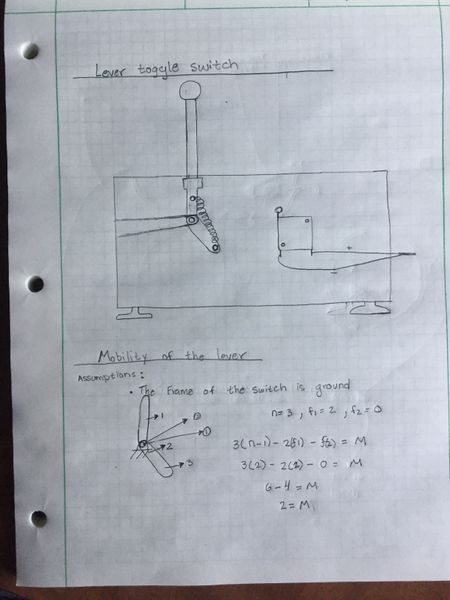 Lever toggle switch
+
=
Mobility of the lever
Assumptions:
• The Frame of the switch is ground
n=3, f1=2, f2=0
1
②
①
2
3
3(n-1)-2(f1)-f2) = M
3(2)-2(2)-0 = M
6-4=M
2=M